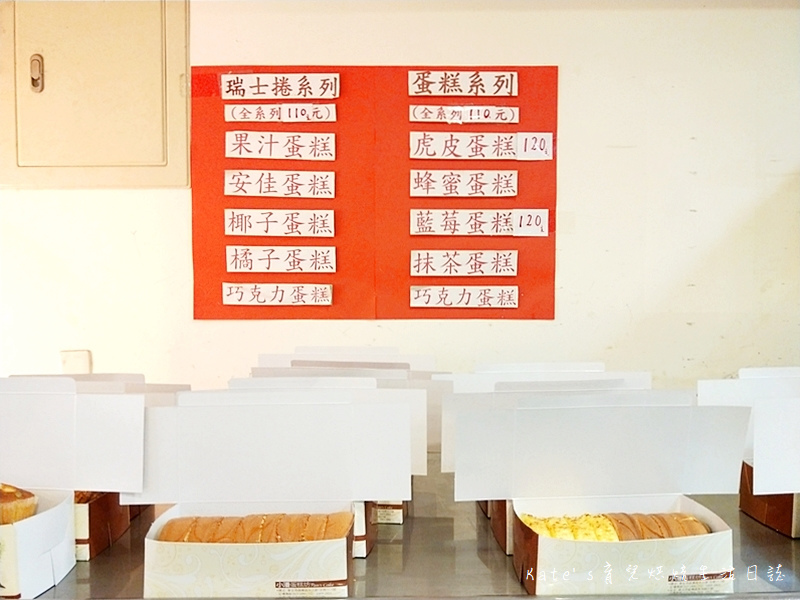 瑞士捲系列
(全系列110元)
果汁蛋糕
安佳蛋糕
椰子蛋糕
橘子蛋糕
巧克力蛋糕
蛋糕系列
(全系列110元)
虎皮蛋糕 120元
蜂蜜蛋糕
藍莓蛋糕 120元
抹茶蛋糕
巧克力蛋糕
小潘蛋糕坊
Kate's育兒烘焙生活日誌